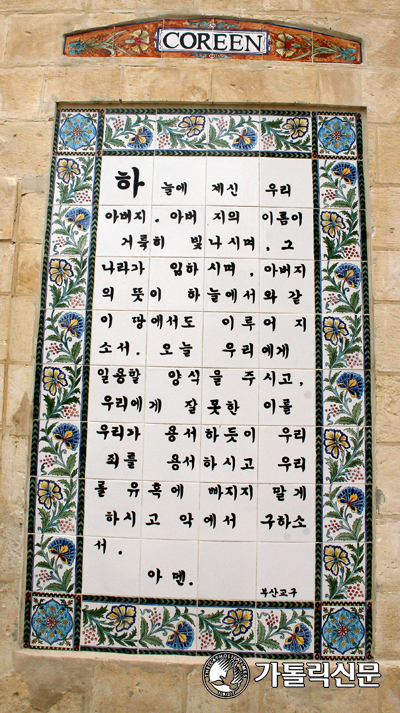 COREEN
하 늘에 계신 우리
아버지. 아버 지의 이름이
거룩히 빛나시며, 그
나라가 임하시며, 아버지
의 뜻이 하늘에서와 같
이 땅에서도 이루어 지
소서. 오늘 우리에게
일용할 양식을 주시고,
우리에게 잘못한 이를
우리가 용서하듯이 우리
죄를 용서하시고 우리
를 유혹에 빠지지 말게
하시고 악에서 구하소
서.
아멘.
부산교구
가톨릭신문